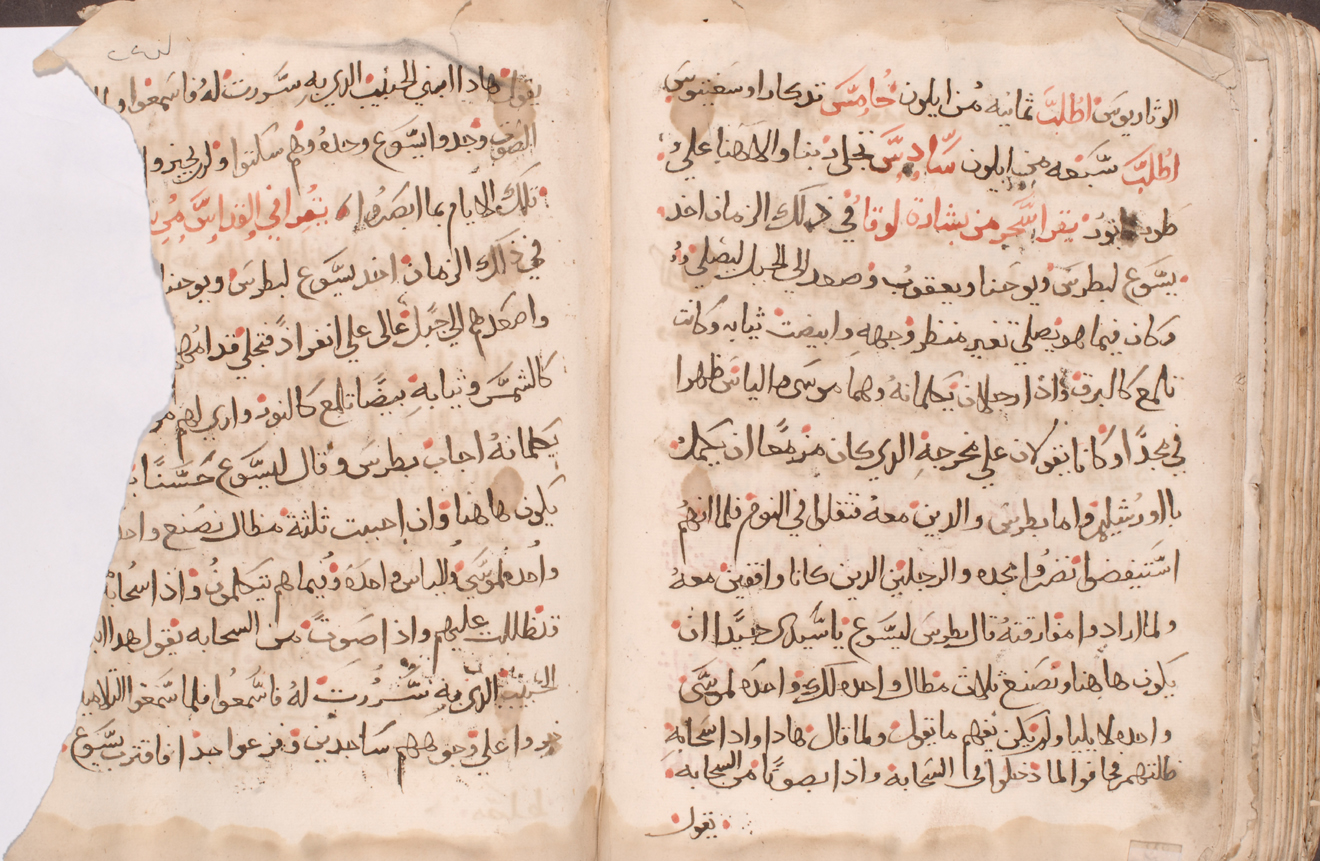 الوثاريوس اطلب ثمانيه من ايلون خامس تدكارا وسغبنوس
اطلب سبعه من ايلون سادس تجلى ربنا والاهنا على
طور تابور يقرا سحر من بشارة لوقا في ذلك الزمان اخد
يسوع لبطرس ويوحنا ويعقوب وصعد الى الجبل ليصلي
وكان فيما هو يصلي تغير منظر وجهه وابيضت ثيابه وكانت
تلمع كالبرق واذا رجلان يكلمانه وهما موسى والياس ظهرا
في مجدا وكانا يقولان على مخرجه الدي كان مزمعا ان يكمله
بااورشليم واما بطرس والدين معه فتقلوا في النوم فلما انهم
استيقضوا نضروا مجده والرجلين الدين كانا واقفين معه
ولما ارادوا مفارقته قال بطرس ليسوع ياسيدي جيدا ان
يكون هاهنا ونصنع تلات مظال واحده لك وواحده لموسى
وواحده لايليا ولم يكن يفهم ما يقول ولما قال هادا وادا سحابه
ظلتهم فخافوا لما دخلوا في السحابه واذا بصوتا من السحابه
يقول
يقول هادا ابني الحبيب الدي به سررت له فاسمعوا ولما
الصوت وجدوا يسوع وحده وهم سكتوا ولم يخبروا
تلك الايام بما ابصروا يقرا في القداس من
في ذلك الزمان اخد يسوع لبطرس ويوحنا
واصعدهم الى جبل عالى على انفراد فتجلى قدامهم
كالشمس وثيابه بيضا تلمع كالنور واري لهم
يكلمانه اجاب بطرس وقال ليسوع حسنا
يكون هاهنا وان احببت ثلثة مظال نصنع واحده
واحده لموسى والياس واحده وفيما هم يتكلمون واذا سحابة
تظللت عليهم واذا صوت من السحابه يقول هدا ابني
الحبيب الدي به سررت له فاسمعوا فلما سمعوا التلاميد
خروا على وجوههم ساجدين وفزعوا جدا فاقترب يسوع